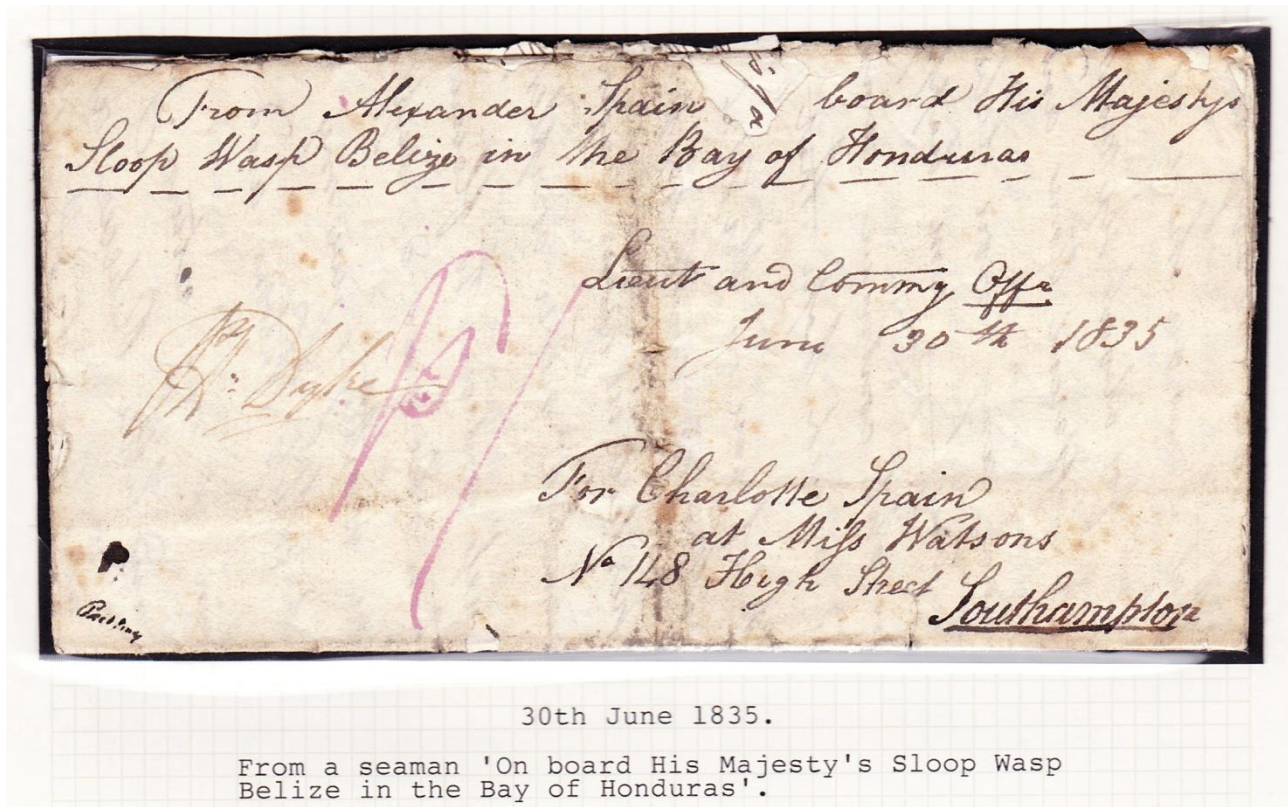 From Alexander Spain board His Majestys
Sloop Wasp Belize in the Bay of Honduras
Lieut and Commg Offr
June 30th 1835
Wm Dyke
For Charlotte Spain
at Miss Watsons
No 148 High Street
Southampton
30th June 1835.
From a seaman 'On board His Majesty's Sloop Wasp
Belize in the Bay of Honduras'.